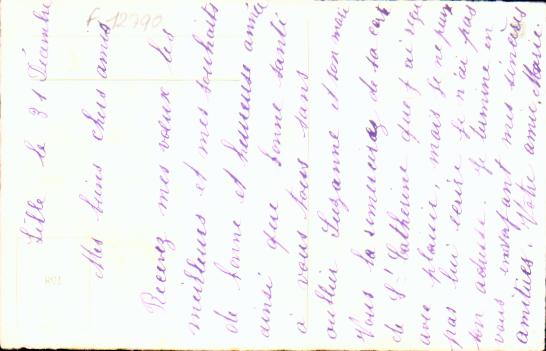 F. 12790
Lille le 31 Décembre
Mes biens chers amis
Recevez mes vœux les
meilleurs et mes souhaits
de bonne et heureuse année
ainsi que bonne santé
à vous tous sans
oublier Suzanne et son mari
Vous la remercierez de sa carte
de Ste Catherine que j'ai reçu
avec plaisir, mais je ne puis
pas lui écrire je n'ai pas
son adresse. Je termine en
vous envoyant mes sincères
amitiés. Votre amie, Marie.